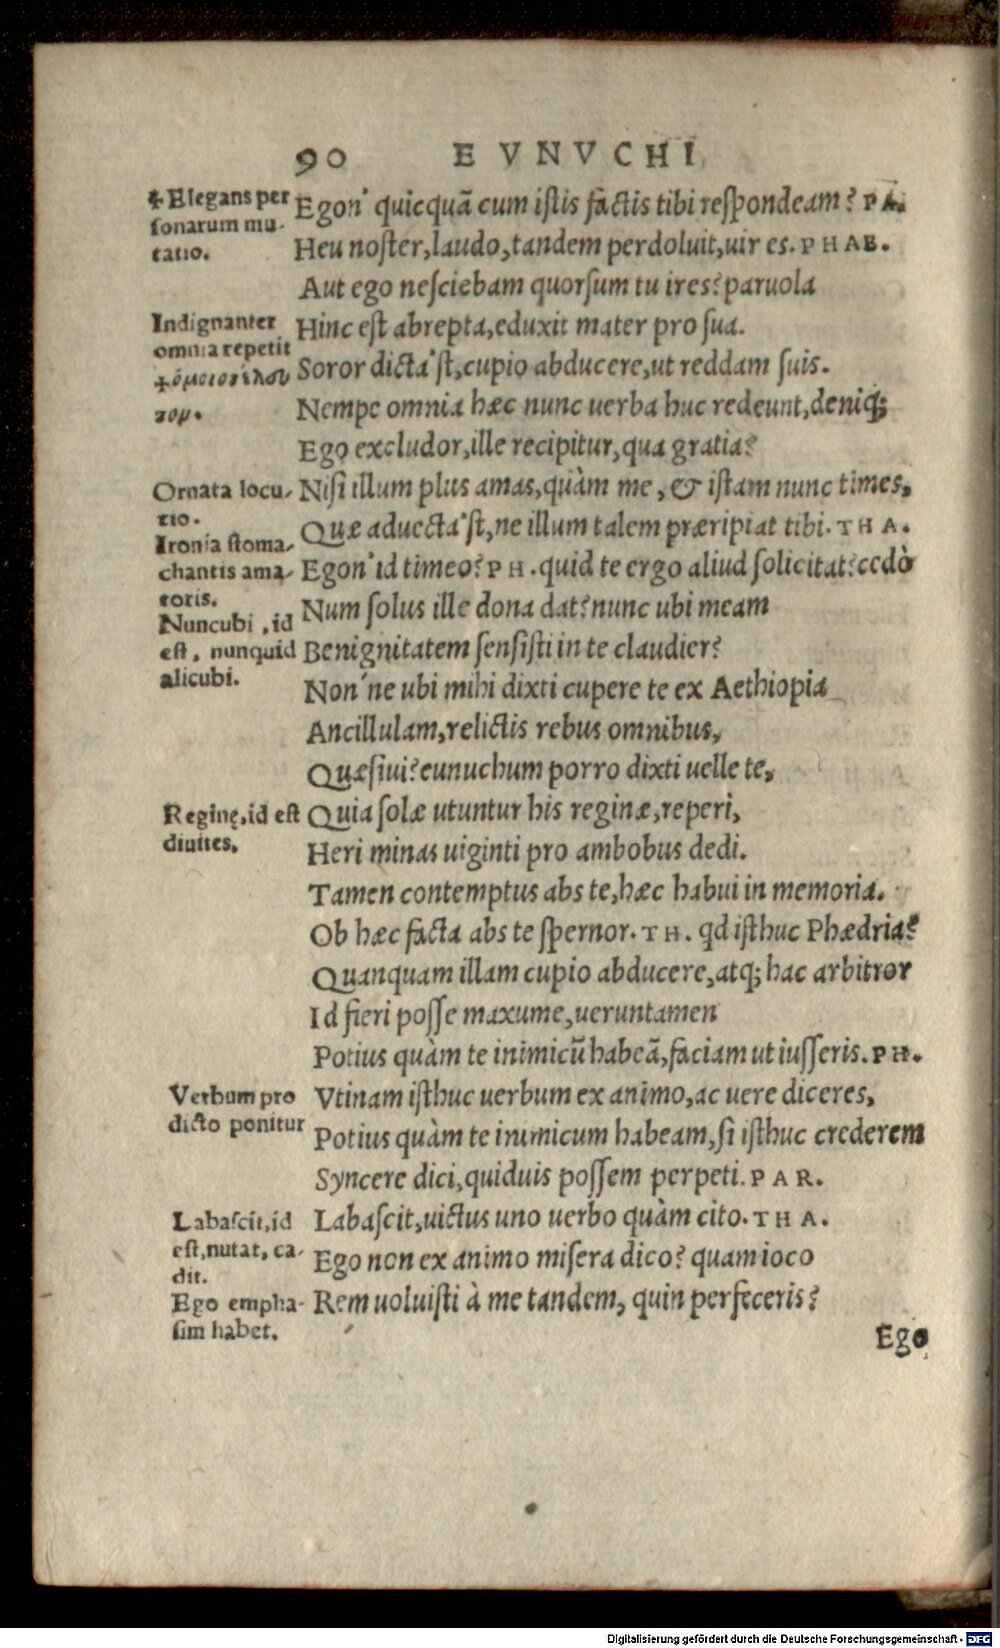 90 EVNVCHI
✢ Elegans per
sonarum mu-
tatio.
Egon' quicquā cum istis factis tibi respondeam? PA.
Heu noster, laudo, tandem perdoluit, uir es. PHAE.
Aut ego nesciebam quorsum tu ires? paruola
Indignanter
omnia repetit
Hinc est abrepta, eduxit mater pro sua.
Soror dicta'st, cupio abducere, ut reddam suis.
Nempe omnia hæc nunc uerba huc redeunt, deniq;
Ego excludor, ille recipitur, qua gratia?
Ornata locu-
tio.
Ironia stoma-
chantis ama-
toris.
Nuncubi, id
est, nunquid
alicubi.
Nisi illum plus amas, quàm me, & istam nunc times,
Quæ aduecta'st, ne illum talem præripiat tibi. THA.
Egon' id timeo? PH. quid te ergo aliud solicitat? cedò
Num solus ille dona dat? nunc ubi meam
Benignitatem sensisti in te claudier?
Non'ne ubi mihi dixti cupere te ex Aethiopia
Ancillulam, relictis rebus omnibus,
Quæsiui? eunuchum porro dixti uelle te,
Reginę, id est
diuites.
Quia solæ utuntur his reginæ, reperi,
Heri minas uiginti pro ambobus dedi.
Tamen contemptus abs te, hæc habui in memoria.
Ob hæc facta abs te spernor. TH. qd isthuc Phædria?
Quanquam illam cupio abducere, atq; hac arbitror
Id fieri posse maxume, ueruntamen
Potius quàm te inimicū habeā, faciam ut iusseris. PH.
Verbum pro
dicto ponitur
Vtinam isthuc uerbum ex animo, ac uere diceres,
Potius quàm te inimicum habeam, si isthuc crederem
Syncere dici, quiduis possem perpeti. PAR.
Labascit, id
est, nutat, ca-
dit.
Ego empha-
sim habet.
Labascit, uictus uno uerbo quàm cito. THA.
Ego non ex animo misera dico? quam ioco
Rem uoluisti à me tandem, quin perfeceris?
Ego
Digitalisierung gefördert durch die Deutsche Forschungsgemeinschaft - DFG